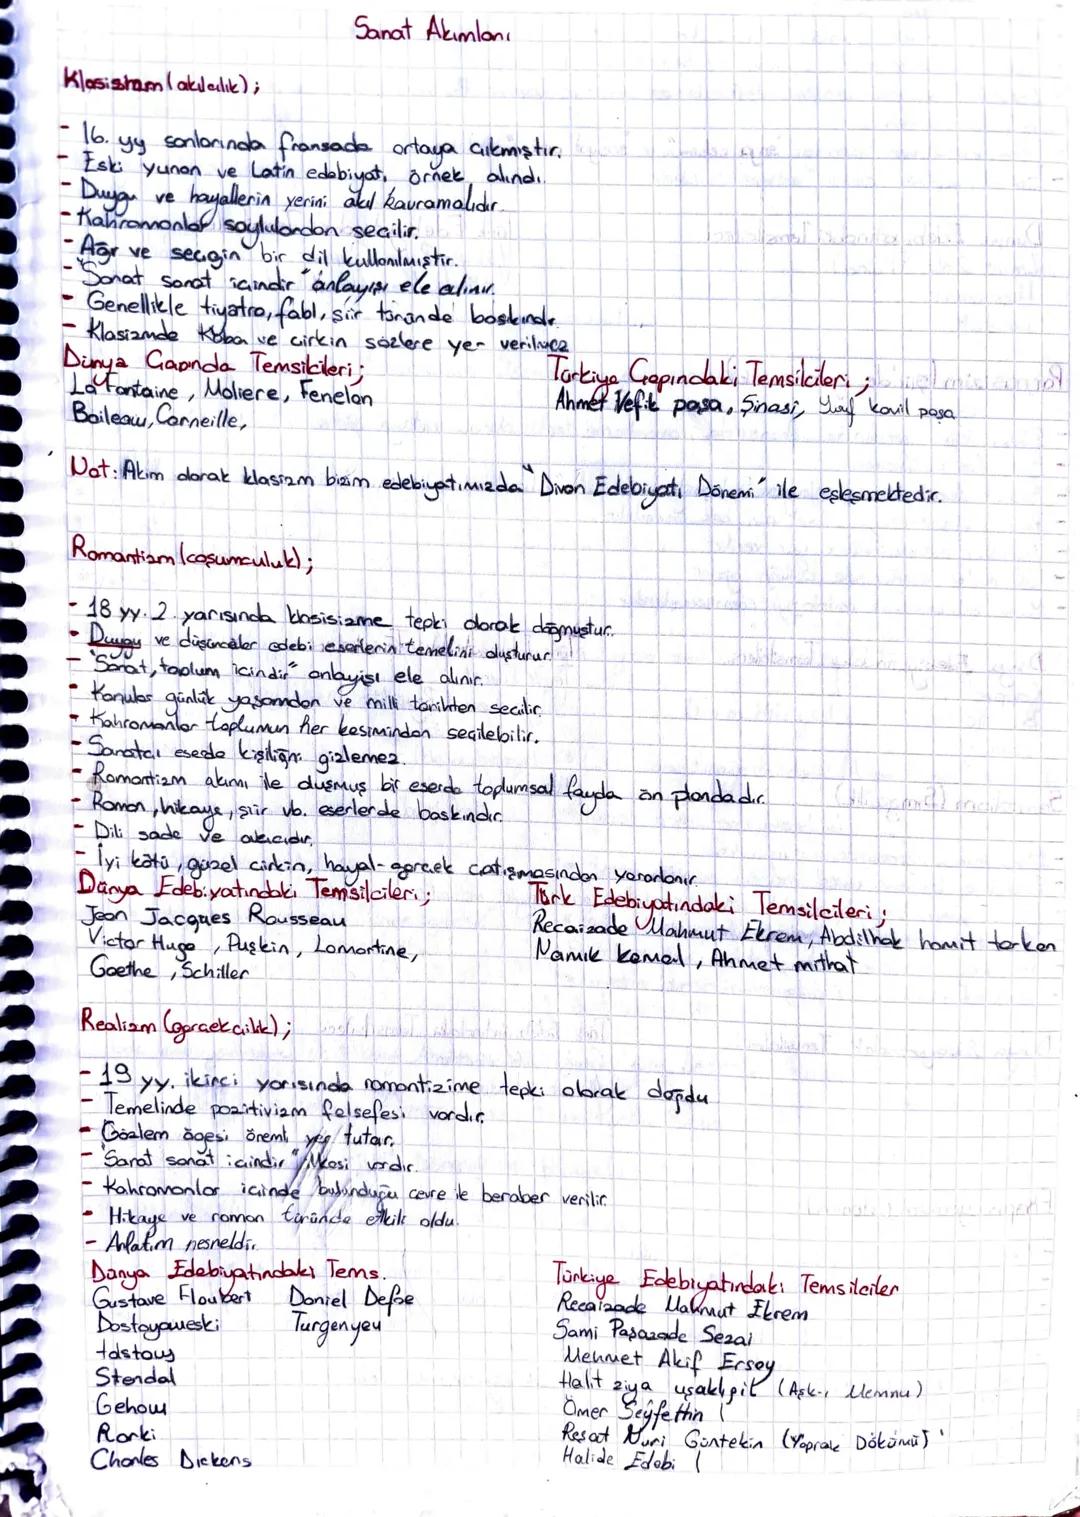 Sanat Akımları
Klasisizm (akılcılık);
- 16. yy sonlarında fransada ortaya çıkmıştır.
- Eski yunan ve Latin edebiyatı örnek alındı.
- Duygu ve hayallerin yerini akıl kavramalıdır.
- Kahramanlar soylulardan seçilir.
- Ağır ve seçgin bir dil kullanılmıştır.
- "Sanat sanat içindir" anlayışı ele alınır.
- Genellikle tiyatro, fabl, şiir türünde baskındır.
- Klasizmde Kaba ve çirkin sözlere yer verilmez
Dünya Çapında Temsilcileri;
La Fontaine, Moliere, Fenelon
Boileau, Corneille,
Türkiye Çapındaki Temsilcileri;
Ahmet Vefik paşa, Şinasi, kamil paşa
Not: Akım olarak klasizm bizim edebiyatımızda "Divan Edebiyatı Dönemi" ile eşleşmektedir.
Romantizm (coşumculuk);
- 18 yy. 2. yarısında klasisizme tepki olarak doğmuştur.
- Duygu ve düşünceler edebi eserlerin temelini oluşturur.
- "Sanat, toplum içindir" anlayışı ele alınır.
- Konular günlük yaşamdan ve milli tarihten seçilir.
- Kahramanlar toplumun her kesiminden seçilebilir.
- Sanatçı eserde kişiliğini gizlemez.
- Romantizm akımı ile oluşmuş bir eserde toplumsal fayda ön plandadır.
- Roman, hikaye, şiir vb. eserlerde baskındır.
- Dili sade ve akıcıdır.
- İyi kötü, güzel çirkin, hayal-gerçek çatışmasından yararlanır.
Dünya Edebiyatındaki Temsilcileri;
Jean Jacques Rousseau
Victor Hugo, Puşkin, Lamartine,
Goethe, Schiller
Türk Edebiyatındaki Temsilcileri;
Recaizade Mahmut Ekrem, Abdülhak hamit tarkan
Namık kemal, Ahmet mithat
Realizm (gerçekçilik);
- 19 yy. ikinci yarısında romantizime tepki olarak doğdu
- Temelinde pozitivizm felsefesi vardır.
- Gözlem ögesi önemli yer tutar.
- "Sanat sanat içindir" ilkesi vardır.
- Kahramanlar içinde bulunduğu çevre ile beraber verilir.
- Hikaye ve roman türünde etkili oldu.
- Anlatım nesneldir.
Dünya Edebiyatındaki Tems.
Gustave Floubert Daniel Defoe
Dostoyaweski Turgenyev
tolstoy
Stendal
Gehow
Rorki
Charles Dickens
Türkiye Edebiyatındaki Temsilciler
Recaizade Mahmut Ekrem
Sami Paşazade Sezai
Mehmet Akif Ersoy
Halit ziya uşaklıgil (Aşk-ı Memnu)
Ömer Seyfettin (
Reşat Nuri Güntekin (Yaprak Dökümü)
Halide Edebi (